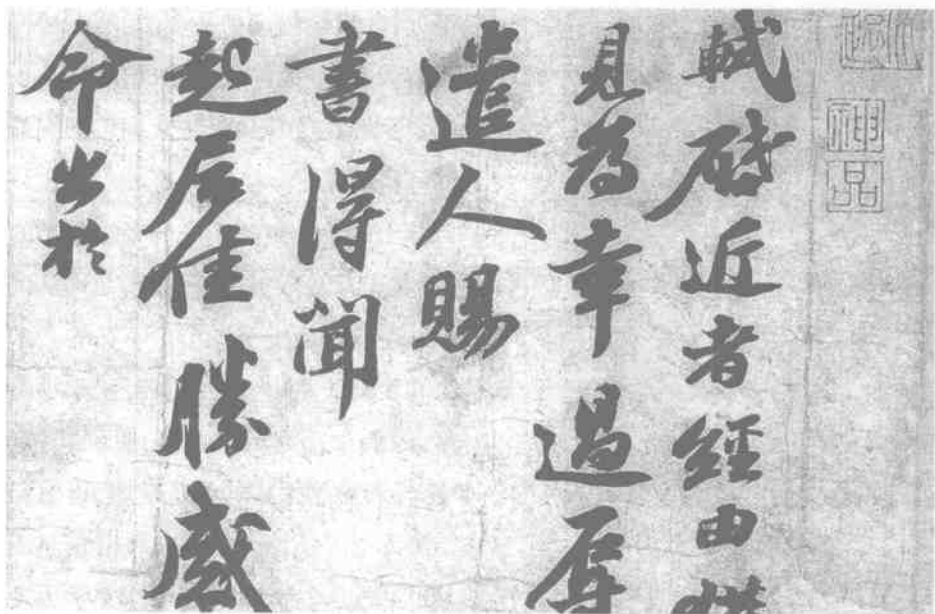 神品
軾啓近者經由
見為幸過辱
遣人賜
書得聞
起居佳勝感
命出於